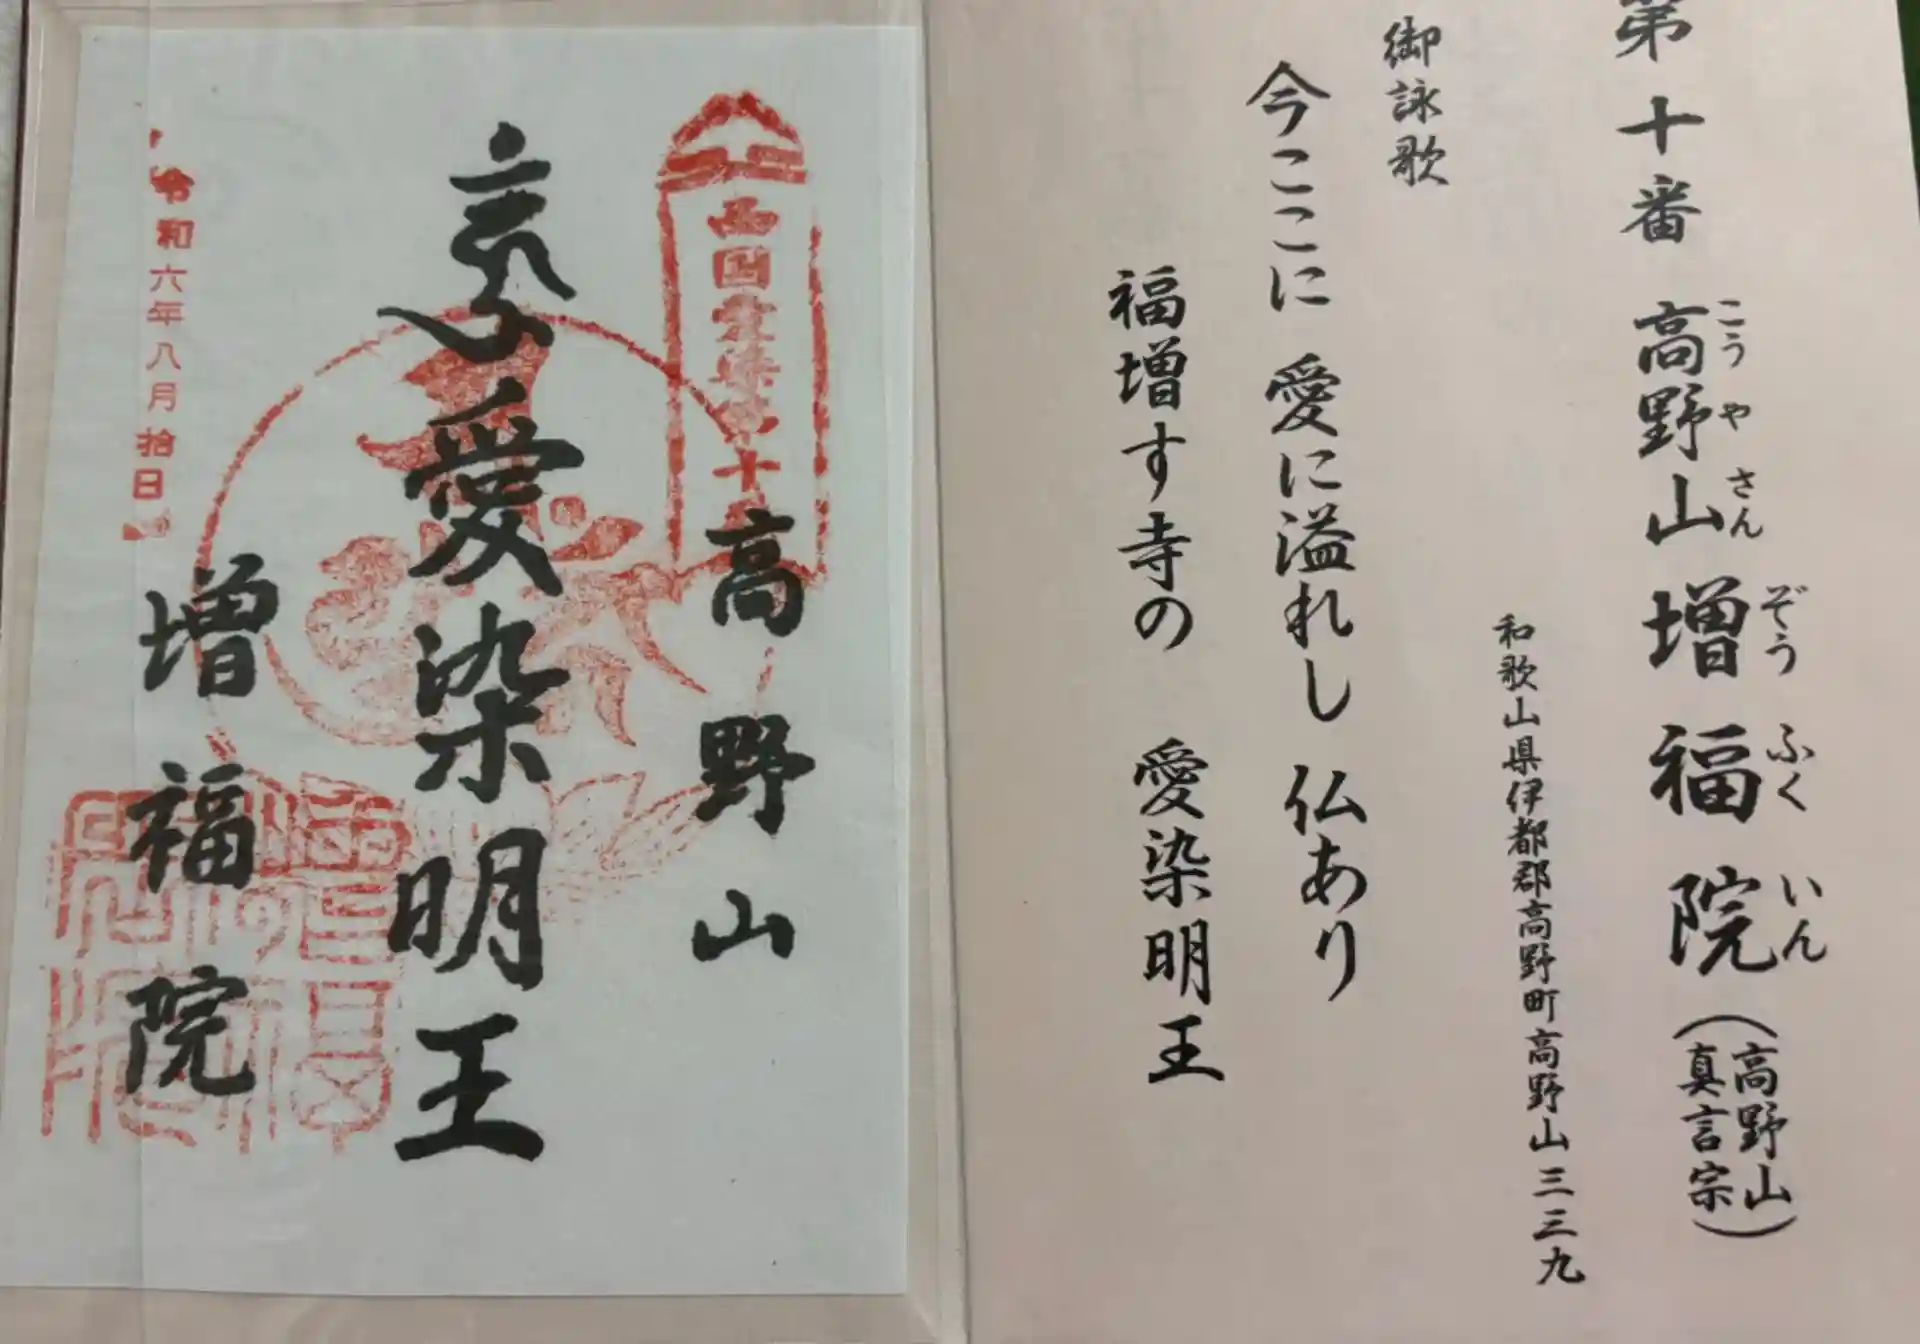 第十番 高野山増福院(高野山真言宗)
こうやさん ぞうふくいん
和歌山県伊都郡高野町高野山三三九
御詠歌
今ここに 愛に溢れし 仏あり
福増す寺の 愛染明王
西国愛染第十番
高野山
愛染明王
増福院
令和六年八月拾日